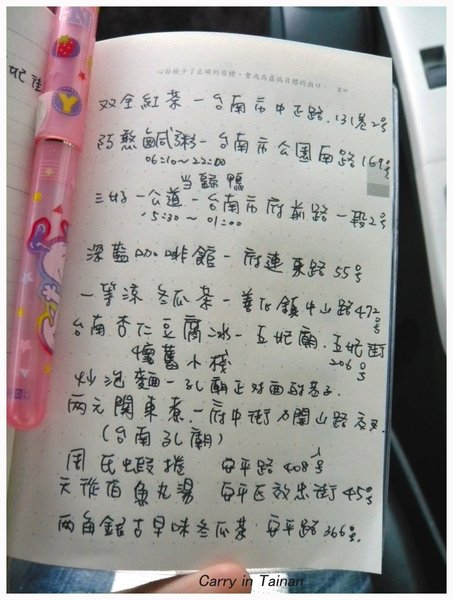 心若缺少了正確的目標，會成為虛偽目標的出口。
双全紅茶－台南市中正路.131巷2号
阿憨鹹粥－台南市公園南路169号
06:10～22:00
当歸鴨
三好一公道－台南市府前路一段2号
15:30～01:00
深藍咖啡館－府連東路55号
一等涼冬瓜茶－善化鎮中山路472号
台南杏仁豆腐冰－五妃廟.五妃街206号
懷舊小棧
炒泡麵－孔廟正対面的巷子.
両元関東煮.－府中街及開山路交叉.
(台南孔廟)
周氏蝦捲 安平路408号
天從伯魚丸湯 安平区效忠街45号
两角銀古早味冬瓜茶 安平路366号.
Carry in Tainan